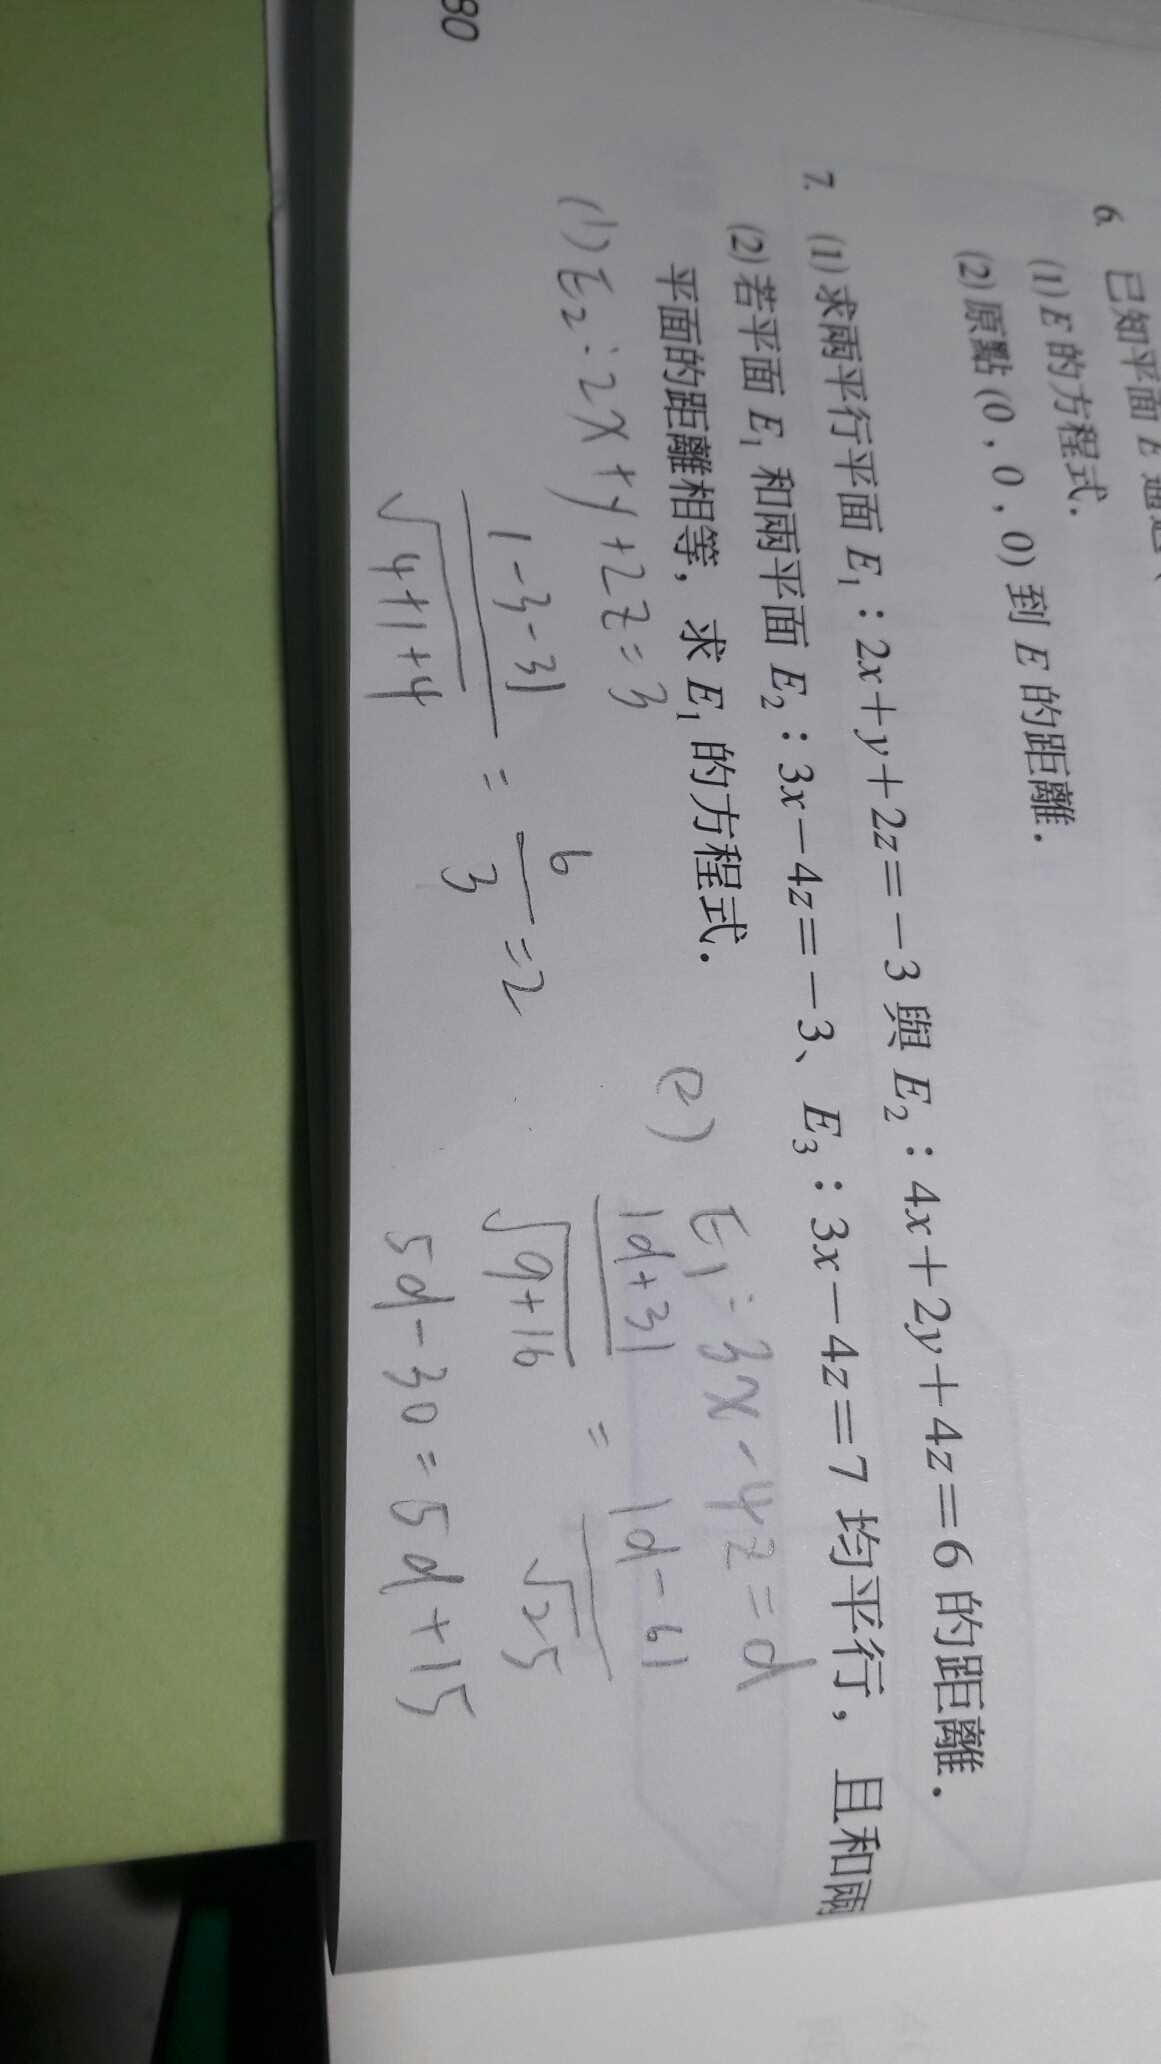 6. 已知平面 E 通過
(1) E 的方程式.
(2) 原點 (0 , 0 , 0) 到 E 的距離.
7. (1) 求兩平行平面 E₁ : 2x+y+2z=−3 與 E₂ : 4x+2y+4z=6 的距離.
(2) 若平面 E₁ 和兩平面 E₂ : 3x−4z=−3、E₃ : 3x−4z=7 均平行，且和兩
平面的距離相等，求 E₁ 的方程式.
(1) E₂ : 2x+y+2z=3
|-3-3| / √4+1+4 = 6/3 = 2
(2) E₁ : 3x-4z=d
|d+3| / √9+16 = |d-6| / √25
5d-30=5d+15
80